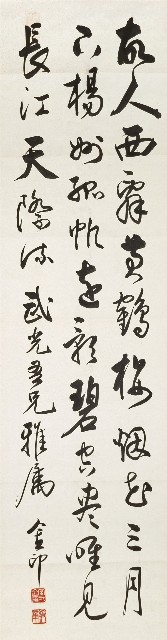 故人西辭黃鶴樓烟花三月
下楊州孤帆遠影碧空盡唯見
長江天際流 武光吾兄雅屬